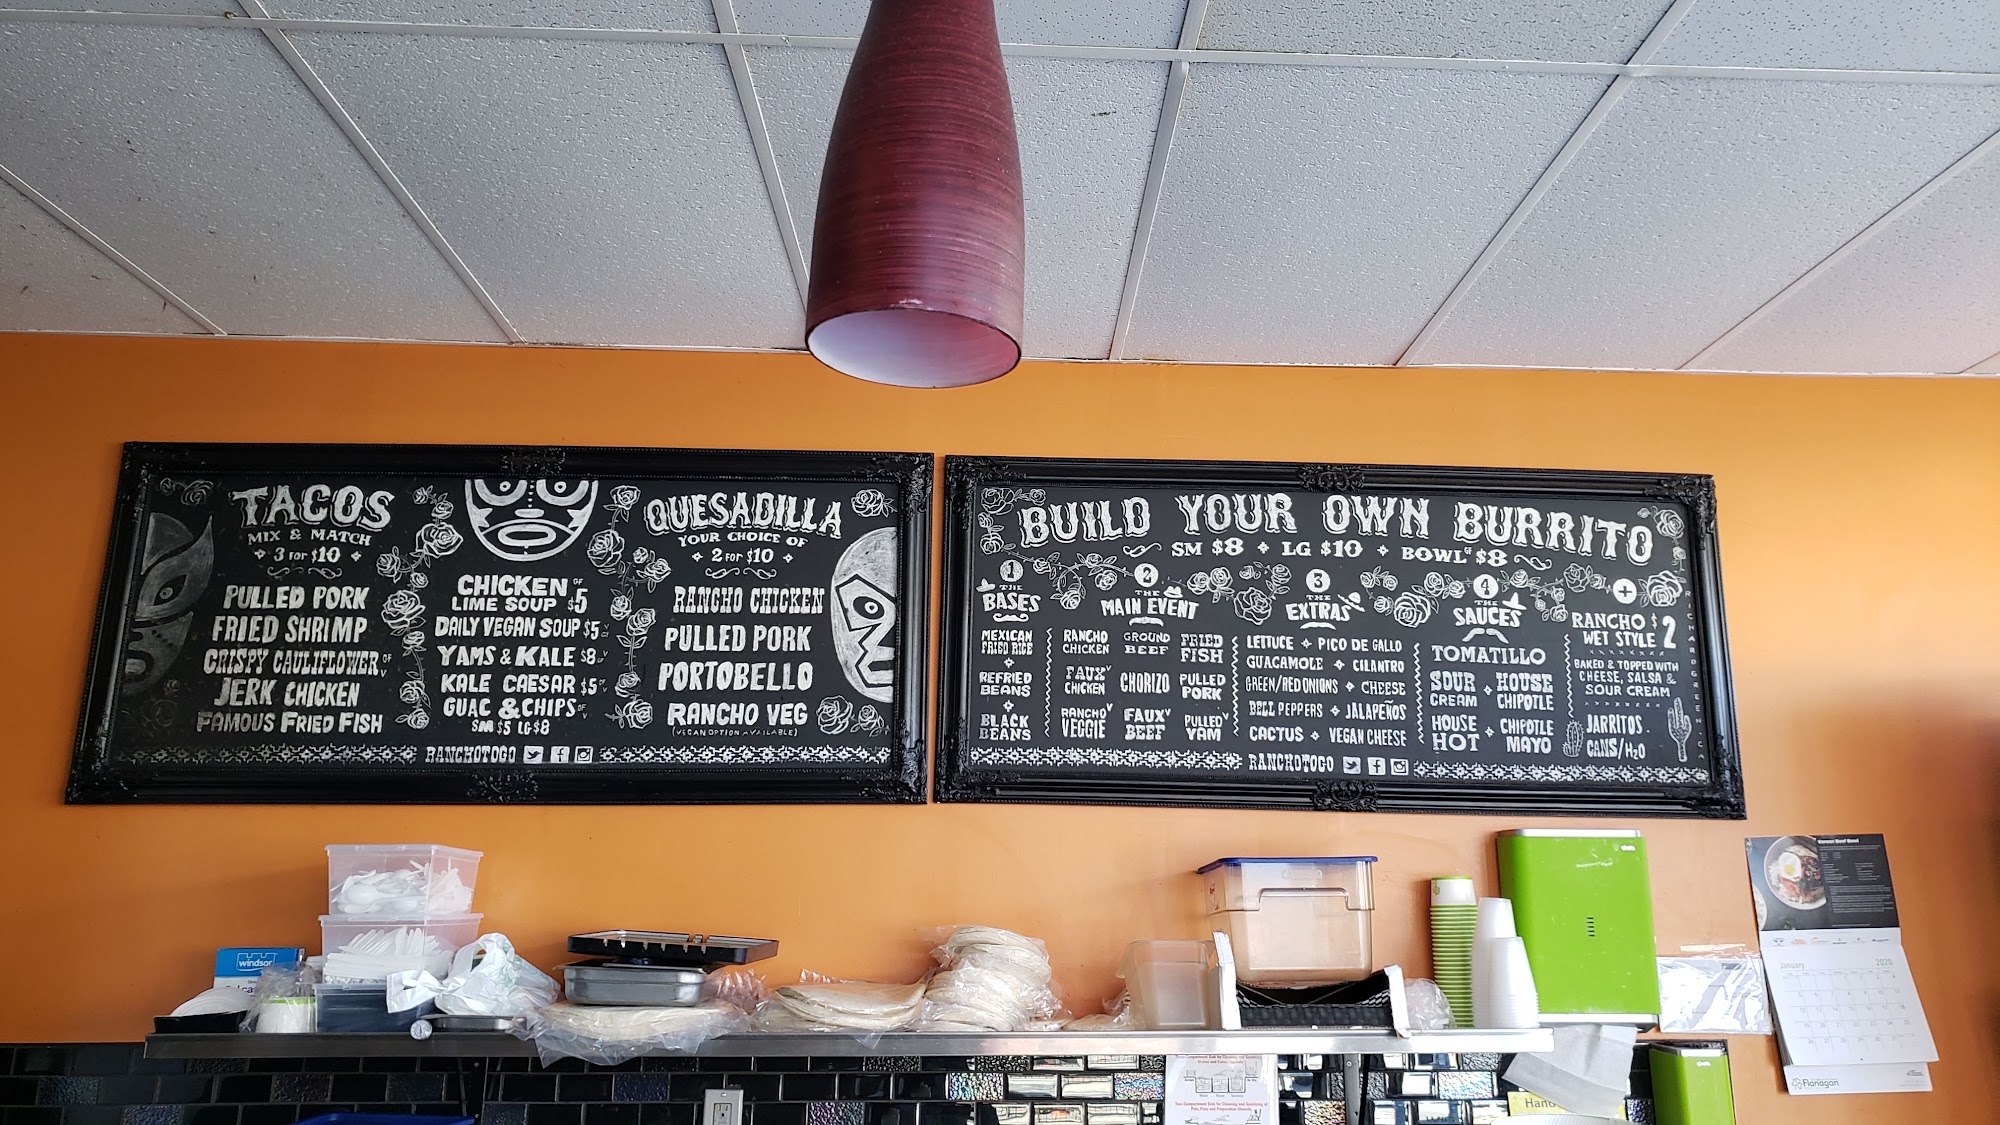 TACOS
MIX & MATCH
3 FOR $10
PULLED PORK
FRIED SHRIMP
CRISPY CAULIFLOWER GF V
JERK CHICKEN
FAMOUS FRIED FISH
CHICKEN GF
LIME SOUP $5
DAILY VEGAN SOUP $5 V
YAMS & KALE $8 V
KALE CAESAR $5 V
GUAC & CHIPS GF V
SM $5 LG $8
QUESADILLA
YOUR CHOICE OF
2 FOR $10
RANCHO CHICKEN
PULLED PORK
PORTOBELLO
RANCHO VEG
(VEGAN OPTION AVAILABLE)
RANCHOTOGO
BUILD YOUR OWN BURRITO
SM $8 LG $10 BOWL GF $8
1
THE
BASES
MEXICAN
FRIED RICE
REFRIED
BEANS
BLACK
BEANS
2
THE
MAIN EVENT
RANCHO
CHICKEN
FAUX V
CHICKEN
RANCHO V
VEGGIE
GROUND
BEEF
CHORIZO
FAUX V
BEEF
FRIED
FISH
PULLED
PORK
PULLED V
YAM
3
THE
EXTRAS
LETTUCE + PICO DE GALLO
GUACAMOLE + CILANTRO
GREEN/RED ONIONS + CHEESE
BELL PEPPERS + JALAPEÑOS
CACTUS + VEGAN CHEESE
4
THE
SAUCES
TOMATILLO
SOUR
CREAM
HOUSE
CHIPOTLE
HOUSE
HOT
CHIPOTLE
MAYO
+
RANCHO $2
WET STYLE
BAKED & TOPPED WITH
CHEESE, SALSA &
SOUR CREAM
JARRITOS
CANS/H2O
RICHARDGREEN.CA
RANCHOTOGO
windsor
Korean Beef Bowl
January 2020
Flanagan
Hand